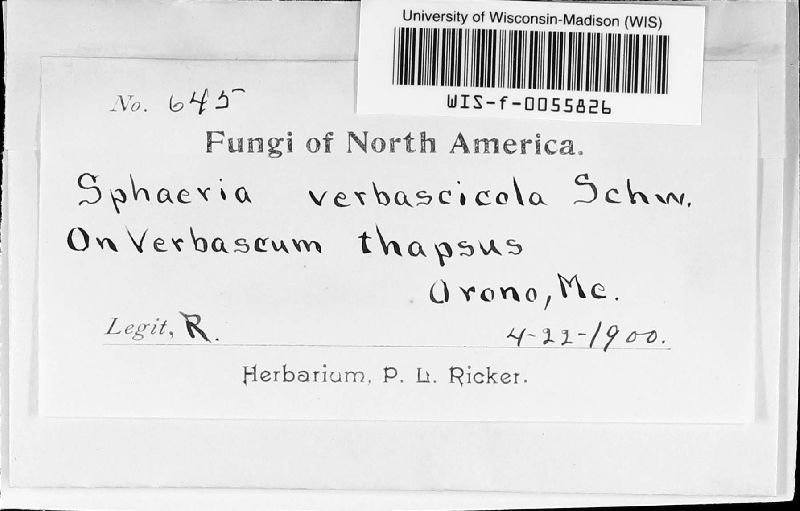 University of Wisconsin-Madison (WIS)
WIS-f-0055826
No. 645
Fungi of North America.
Sphaeria verbascicola Schw.
On Verbascum thapsus
Orono, Me.
Legit, R. 4-22-1900.
Herbarium, P. L. Ricker.